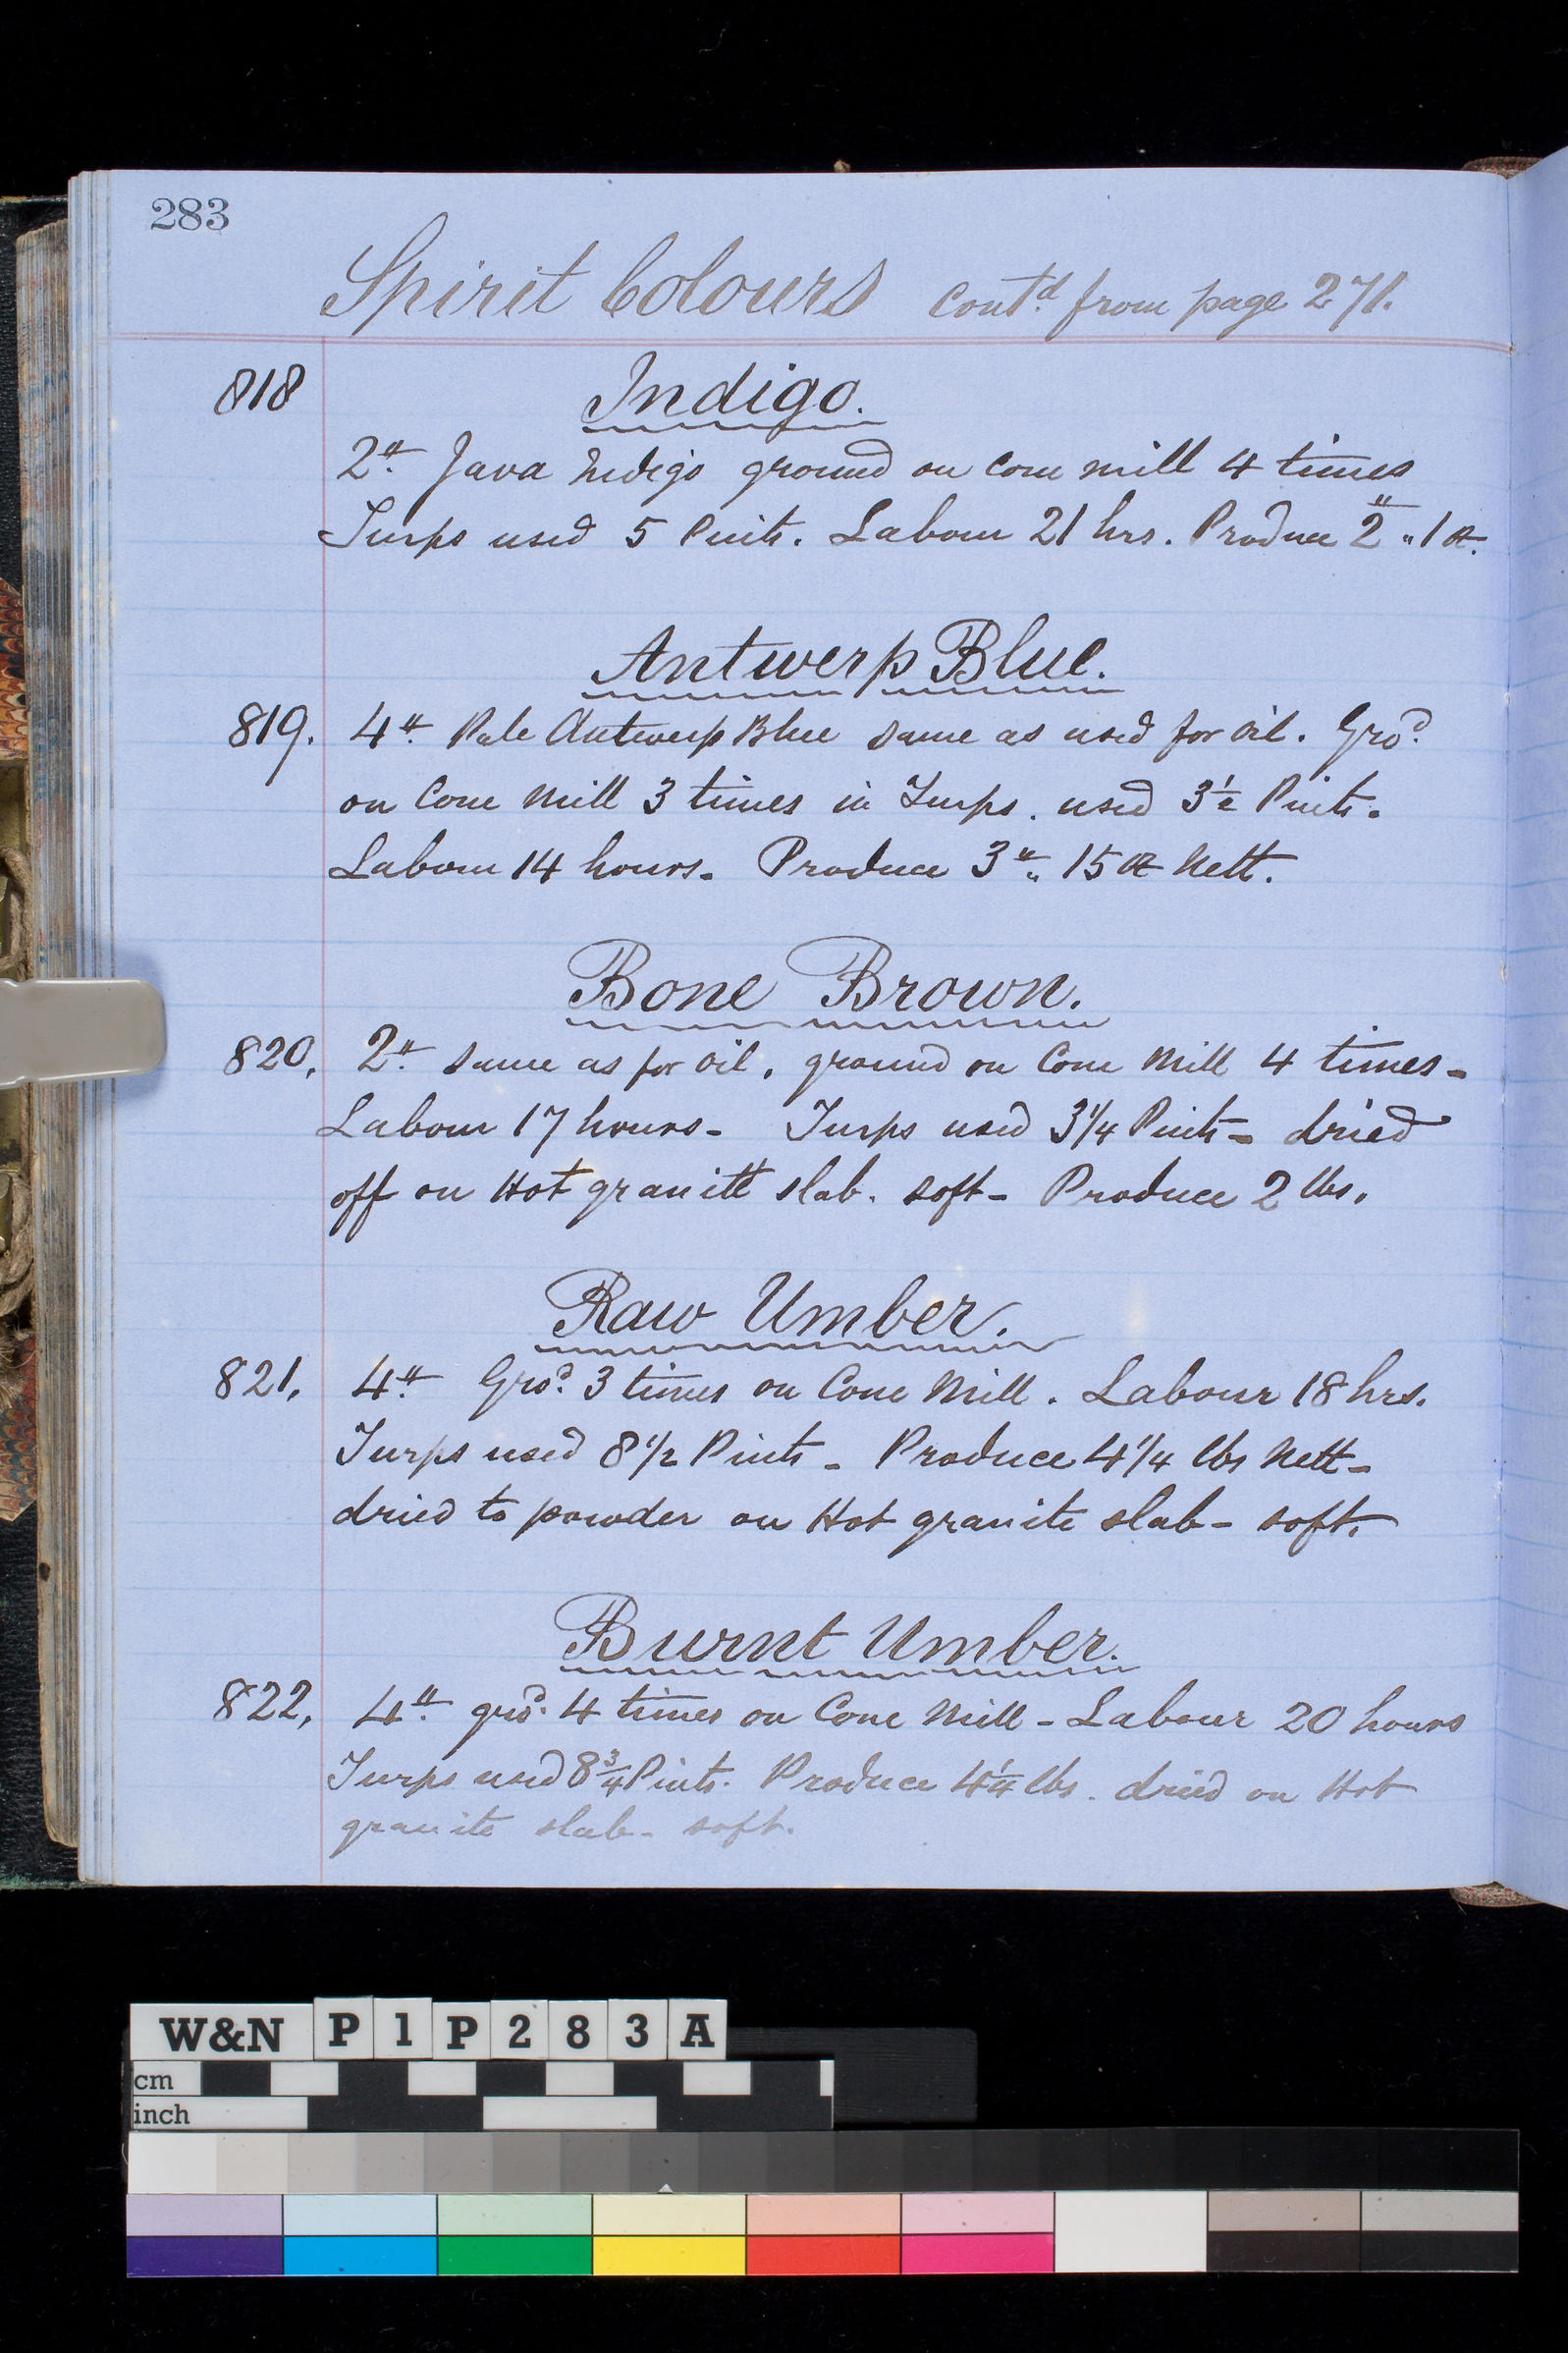 283
Spirit Colours contd. from page 271.
818
Indigo.
2 lb. Java Indigo ground on Cone Mill 4 times
Turps used 5 Pints. Labour 21 hrs. Produce 2 lb " 1 oz.
Antwerp Blue.
819. 4 lb. Pale Antwerp Blue same as used for oil. Grod.
on Cone Mill 3 times in Turps. used 3 1/2 Pints.
Labour 14 hours. Produce 3 lb " 15 oz Nett.
Bone Brown.
820, 2 lb. same as for oil, ground on Cone Mill 4 times -
Labour 17 hours - Turps used 3 1/4 Pints - dried
off on Hot granite slab. soft - Produce 2 lbs,
Raw Umber.
821, 4 lb. Grod. 3 times on Cone Mill. Labour 18 hrs.
Turps used 8 1/2 Pints - Produce 4 1/4 lbs Nett -
dried to powder on Hot granite slab - soft.
Burnt Umber.
822, 4 lb. grod. 4 times on Cone Mill - Labour 20 hours
Turps used 8 3/4 Pints. Produce 4 1/4 lbs. dried on Hot
granite slab - soft.
W&N P1P283A
cm
inch